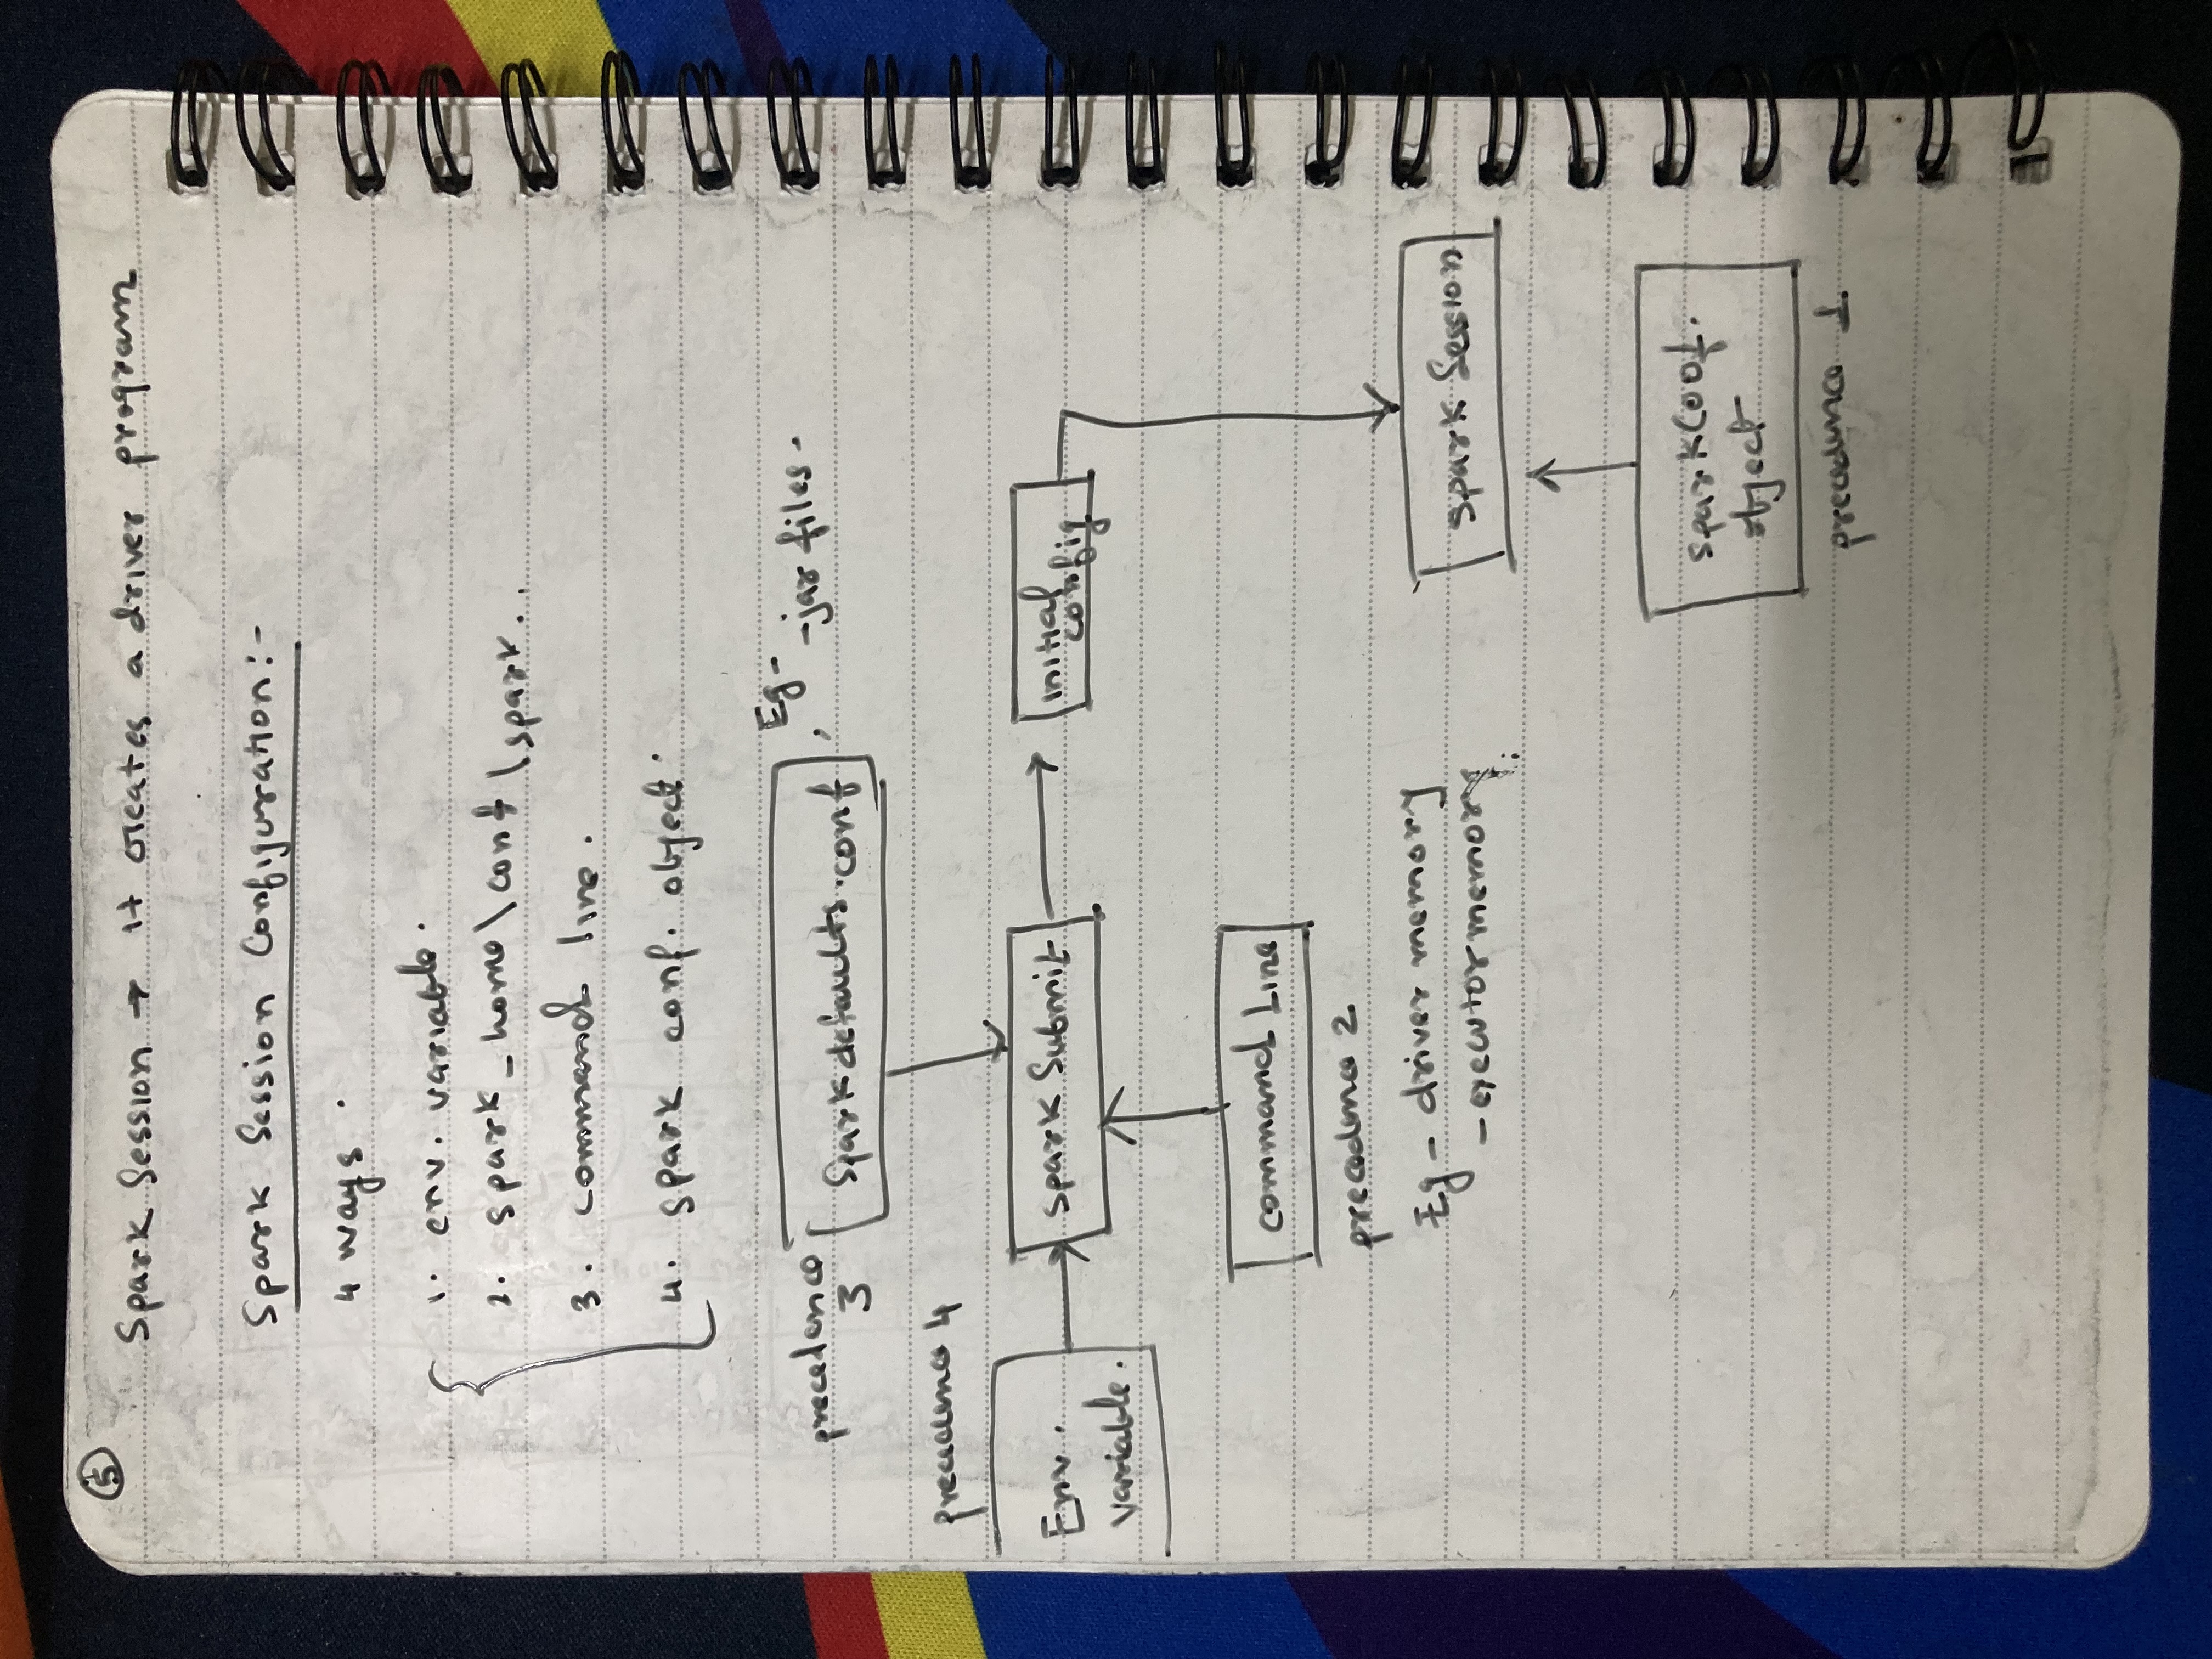 5
Spark Session → It creates a driver program
Spark Session Configuration:-
4 ways .
1. env. variable.
2. spark_home\conf\spark..
3. command line.
4. spark conf. object.
precedence
3
Sparkdefaults.conf
Eg-
-jar files.
precedence 4
Env.
variable.
Spark Submit
initial
config
command Line
precedence 2
Eg - driver memory
- executor memory
spark Session
sparkConf.
object
precedence 1.